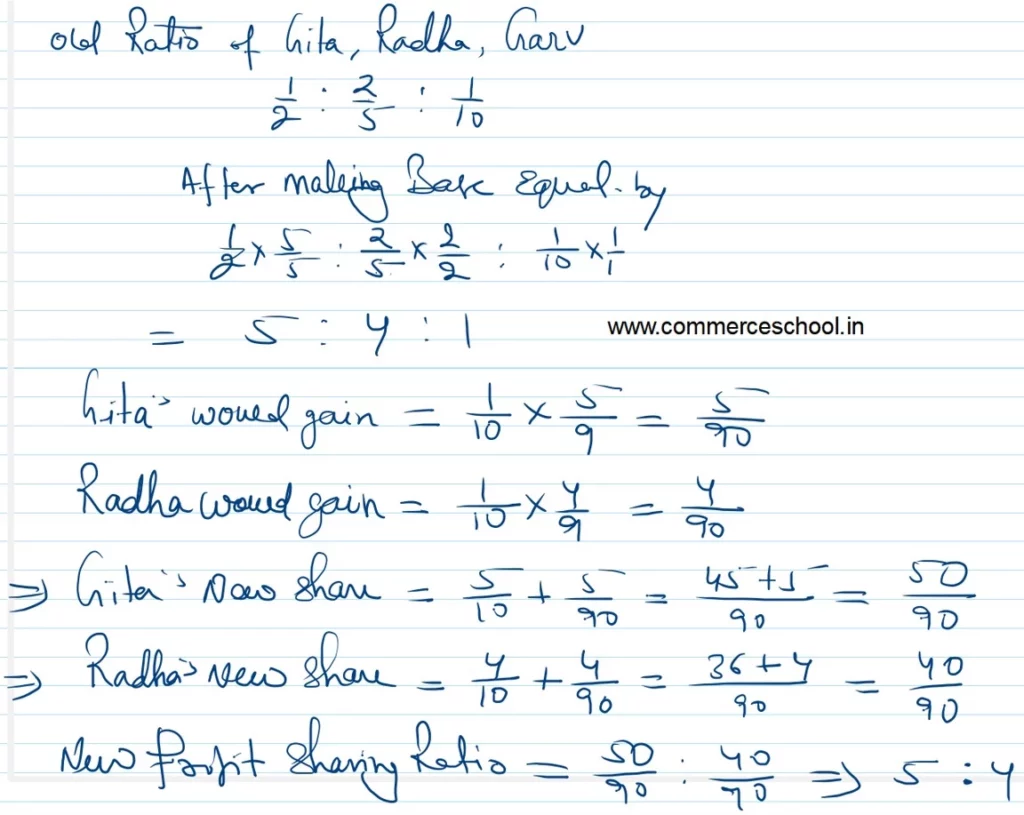 Old Ratio of Gita, Radha, Garv
1/2 : 2/5 : 1/10
After making Base Equal by
1/2 × 5/5 : 2/5 × 2/2 : 1/10 × 1/1
= 5 : 4 : 1
www.commerceschool.in
Gita's would gain = 1/10 × 5/9 = 5/90
Radha would gain = 1/10 × 4/9 = 4/90
⇒ Gita's New Share = 5/10 + 5/90 = 45+5/90 = 50/90
⇒ Radha's New Share = 4/10 + 4/90 = 36+4/90 = 40/90
New Profit Sharing Ratio = 50/90 : 40/90 ⇒ 5 : 4